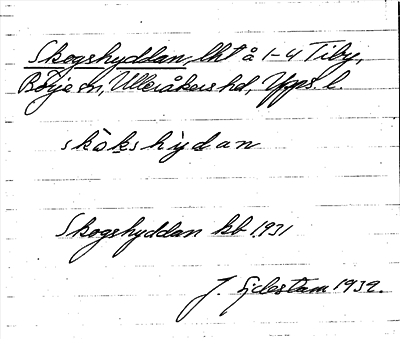 Skogshyddan, lht å 1-4 Tiby,
Börje sn, Ulleråkers hd, Upps. l.
skò̀kshỳdan
Skogshyddan kb 1931
J. Sjdestam 1932.